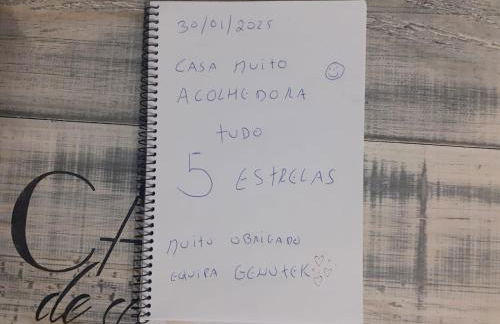 30/01/2025
CASA MUITO
ACOLHEDORA
TUDO
5 ESTRELAS
MUITO OBRIGADO
EQUIPA GENUTEK
CA
de